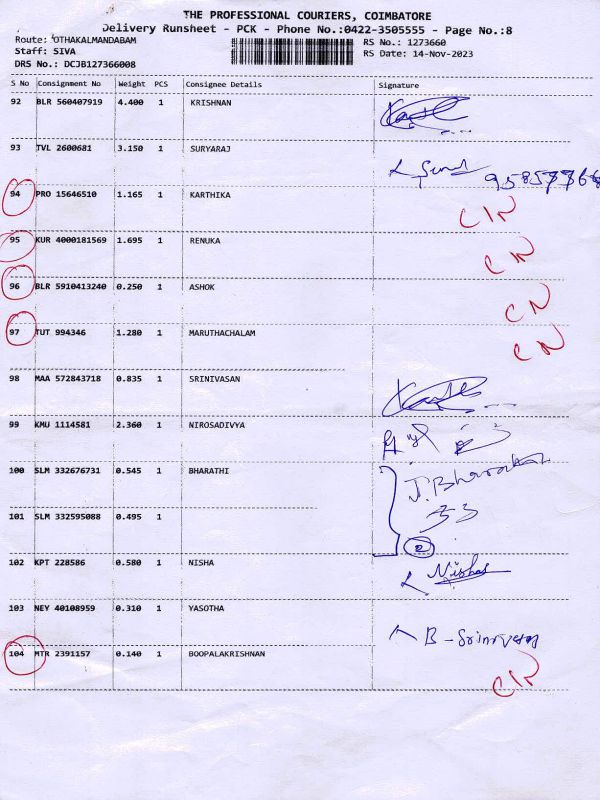 THE PROFESSIONAL COURIERS, COIMBATORE
Delivery Runsheet - PCK - Phone No.:0422-3505555 - Page No.:8
Route: OTHAKALMANDABAM
RS No.: 1273660
Staff: SIVA
RS Date: 14-Nov-2023
DRS No.: DCJB127366008
S No Consignment No Weight PCS Consignee Details Signature
92 BLR 560407919 4.400 1 KRISHNAN
93 TVL 2600681 3.150 1 SURYARAJ
94 PRO 15646510 1.165 1 KARTHIKA CIN
95 KUR 4000181569 1.695 1 RENUKA CIN
96 BLR 5910413240 0.250 1 ASHOK CN
97 TUT 994346 1.280 1 MARUTHACHALAM CIN
98 MAA 572843718 0.835 1 SRINIVASAN
99 KMU 1114581 2.360 1 NIROSADIVYA
100 SLM 332676731 0.545 1 BHARATHI J. Bharathi
33
101 SLM 332595088 0.495 1 2
102 KPT 228586 0.580 1 NISHA Nisha
103 NEY 40108959 0.310 1 YASOTHA B-Srinivasan
104 MTR 2391157 0.140 1 BOOPALAKRISHNAN CIN